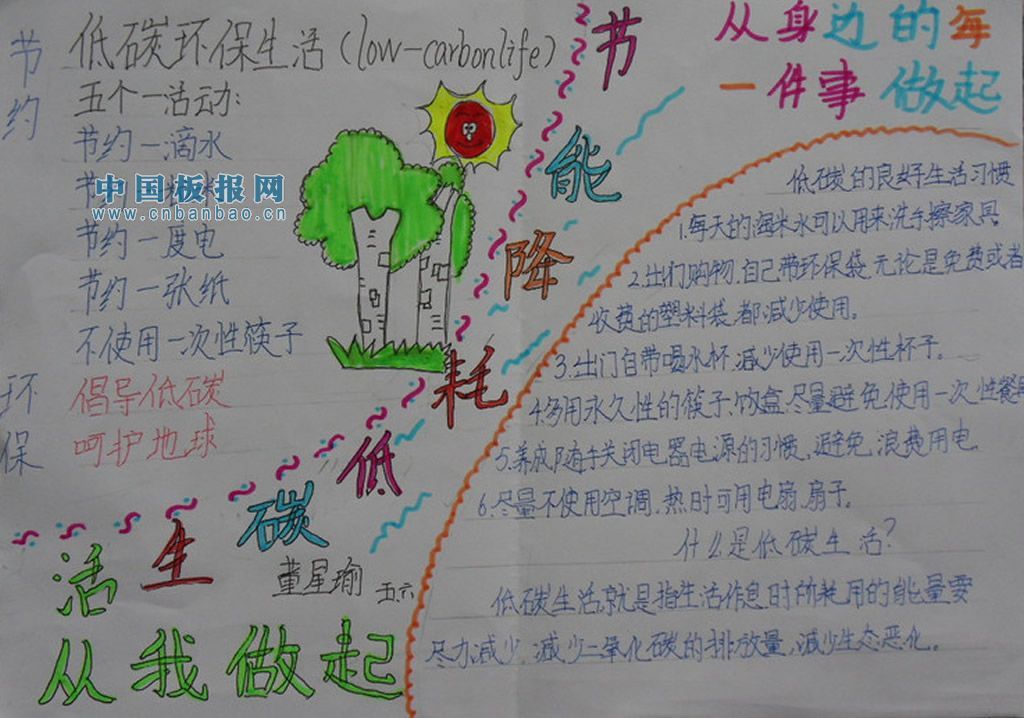 节约
环保
低碳环保生活(low-carbonlife)
五个一活动:
节约一滴水
节约一
中国板报网
www.cnbanbao.cn
节约一度电
节约一张纸
不使用一次性筷子
倡导低碳
呵护地球
节能降耗低碳生活
从我做起
董星瑜 五.六
从身边的每
一件事做起
低碳的良好生活习惯
1.每天的淘米水可以用来洗手擦家具
2.出们购物.自己带环保袋.无论是免费或者
收费的塑料袋.都减少使用。
3.出门自带喝水杯.减少使用一次性杯子。
4.多用永久性的筷子.饭盒.尽量避免使用一次性餐
5.养成随手关闭电器电源的习惯,避免浪费用电.
6.尽量不使用空调.热时可用电扇.扇子。
什么是低碳生活?
低碳生活.就是指生活作息时所耗用的能量要
尽力减少.减少二氧化碳的排放量,减少生态恶化。